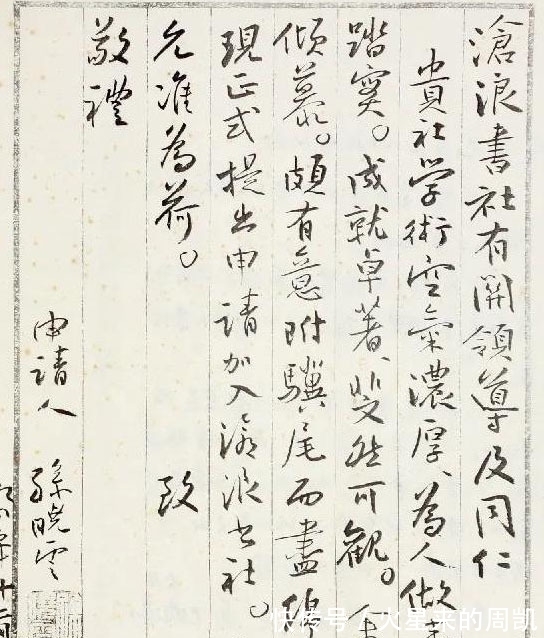 滄浪書社有関領導及同仁
貴社学術空氣濃厚、為人做
踏实。成就卓著、斐然可觀。
傾慕。頗有意附驥尾而盡綿
現正式提出申請加入滄浪书社。
允准為荷。 致
敬禮
申請人 孫曉雲
快传号/火星来的周凯